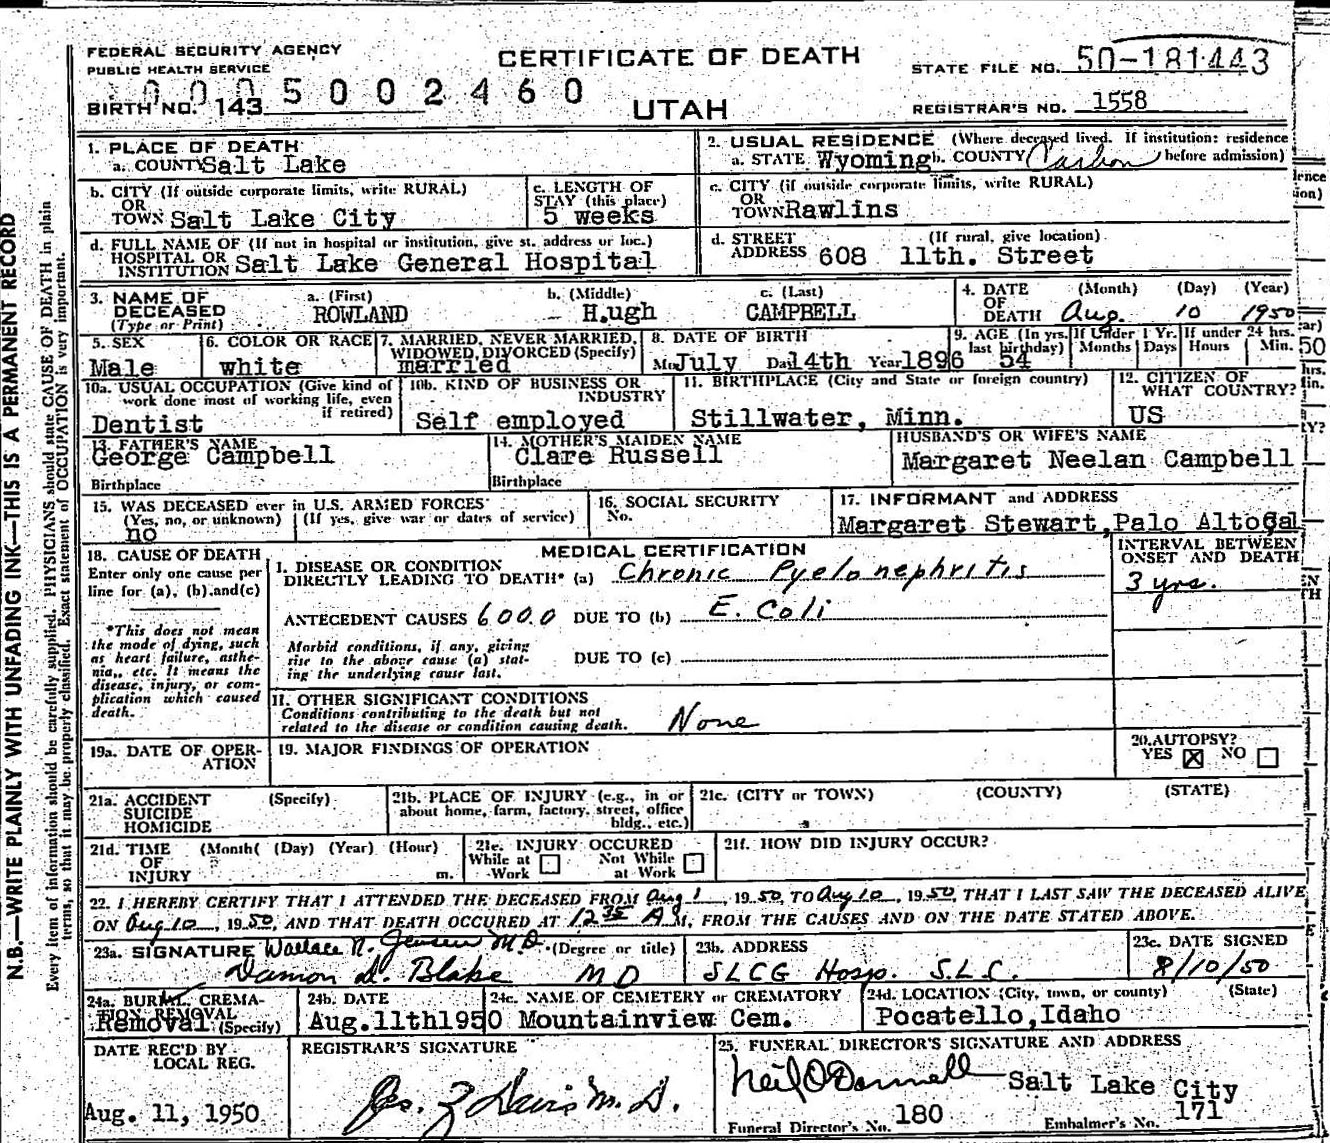 FEDERAL SECURITY AGENCY
PUBLIC HEALTH SERVICE
CERTIFICATE OF DEATH
STATE FILE NO. 50-181443
0005002460
BIRTH NO. 143
UTAH
REGISTRAR'S NO. 1558
1. PLACE OF DEATH
a. COUNTY Salt Lake
2. USUAL RESIDENCE (Where deceased lived. If institution: residence before admission)
a. STATE Wyoming b. COUNTY Carbon
b. CITY (If outside corporate limits, write RURAL)
OR
TOWN Salt Lake City
c. LENGTH OF
STAY (this place)
5 weeks
c. CITY (if outside corporate limits, write RURAL)
OR
TOWN Rawlins
d. FULL NAME OF (If not in hospital or institution, give st. address or loc.)
HOSPITAL OR
INSTITUTION Salt Lake General Hospital
d. STREET (If rural, give location)
ADDRESS 608 11th. Street
3. NAME OF
DECEASED
(Type or Print)
a. (First)
ROWLAND
b. (Middle)
H.ugh
c. (Last)
CAMPBELL
4. DATE
OF
DEATH
(Month) (Day) (Year)
Aug. 10 1950
5. SEX
Male
6. COLOR OR RACE
white
7. MARRIED, NEVER MARRIED,
WIDOWED, DIVORCED (Specify)
married
8. DATE OF BIRTH
Mo July Da 14th Year 1896
9. AGE (In yrs.
last birthday)
54
If Under 1 Yr.
Months Days
If under 24 hrs.
Hours Min.
10a. USUAL OCCUPATION (Give kind of
work done most of working life, even
if retired)
Dentist
10b. KIND OF BUSINESS OR
INDUSTRY
Self employed
11. BIRTHPLACE (City and State or foreign country)
Stillwater, Minn.
12. CITIZEN OF
WHAT COUNTRY?
US
13. FATHER'S NAME
George Campbell
Birthplace
14. MOTHER'S MAIDEN NAME
Clare Russell
Birthplace
HUSBAND'S OR WIFE'S NAME
Margaret Neelan Campbell
15. WAS DECEASED ever in U.S. ARMED FORCES
(Yes, no, or unknown) (If yes, give war or dates of service)
no
16. SOCIAL SECURITY
No.
17. INFORMANT and ADDRESS
Margaret Stewart, Palo Alto Cal
18. CAUSE OF DEATH
Enter only one cause per
line for (a), (b) and (c)
*This does not mean
the mode of dying, such
as heart failure, asthe-
nia, etc. It means the
disease, injury, or com-
plication which caused
death.
MEDICAL CERTIFICATION
INTERVAL BETWEEN
ONSET AND DEATH
I. DISEASE OR CONDITION
DIRECTLY LEADING TO DEATH* (a) Chronic Pyelonephritis
3 yrs.
ANTECEDENT CAUSES 6000 DUE TO (b) E. Coli
Morbid conditions, if any, giving
rise to the above cause (a) stat-
ing the underlying cause last.
DUE TO (c)
II. OTHER SIGNIFICANT CONDITIONS
Conditions contributing to the death but not
related to the disease or condition causing death.
None
19a. DATE OF OPER-
ATION
19. MAJOR FINDINGS OF OPERATION
20. AUTOPSY?
YES ☒ NO ☐
21a. ACCIDENT (Specify)
SUICIDE
HOMICIDE
21b. PLACE OF INJURY (e.g., in or
about home, farm, factory, street, office
bldg., etc.)
21c. (CITY or TOWN) (COUNTY) (STATE)
21d. TIME (Month( (Day) (Year) (Hour)
OF
INJURY m.
21e. INJURY OCCURED
While at Work ☐ Not While at Work ☐
21f. HOW DID INJURY OCCUR?
22. I HEREBY CERTIFY THAT I ATTENDED THE DECEASED FROM Aug 1, 1950 TO Aug 10, 1950, THAT I LAST SAW THE DECEASED ALIVE
ON Aug 10, 1950, AND THAT DEATH OCCURED AT 12 35 A M, FROM THE CAUSES AND ON THE DATE STATED ABOVE.
23a. SIGNATURE Wallace N. Jensen M.D. (Degree or title)
Damon L. Blake M D
23b. ADDRESS
SLCG Hosp. S.L.C.
23c. DATE SIGNED
8/10/50
24a. BURIAL, CREMA-
TION REMOVAL
Removal (Specify)
24b. DATE
Aug. 11th 1950
24c. NAME OF CEMETERY or CREMATORY
Mountainview Cem.
24d. LOCATION (City, town, or county) (State)
Pocatello, Idaho
DATE REC'D BY
LOCAL REG.
Aug. 11, 1950
REGISTRAR'S SIGNATURE
Jos. Z Davis M.D.
25. FUNERAL DIRECTOR'S SIGNATURE AND ADDRESS
Neil O'Donnell Salt Lake City
Funeral Director's No. 180 Embalmer's No. 171
N.B.—WRITE PLAINLY WITH UNFADING INK—THIS IS A PERMANENT RECORD
Every item of information should be carefully supplied. PHYSICIANS should state CAUSE OF DEATH in plain
terms, so that it may be properly classified. Exact statement of OCCUPATION is very important.